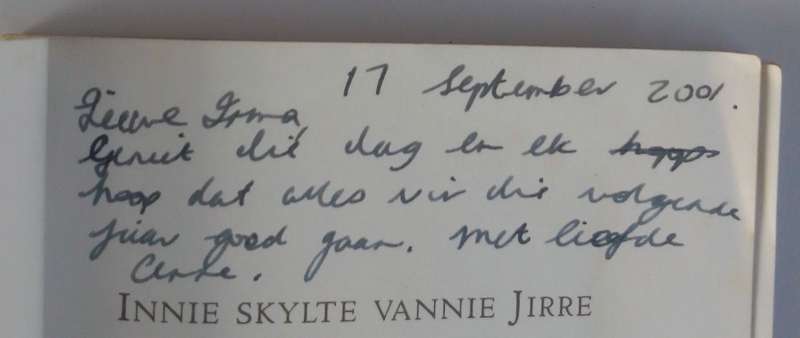 17 September 2001.
Liewe Irma,
Geniet die dag en ek hoop
hoop dat alles vir die volgende
jaar goed gaan. Met liefde
Anne.
INNIE SKYLTE VANNIE JIRRE